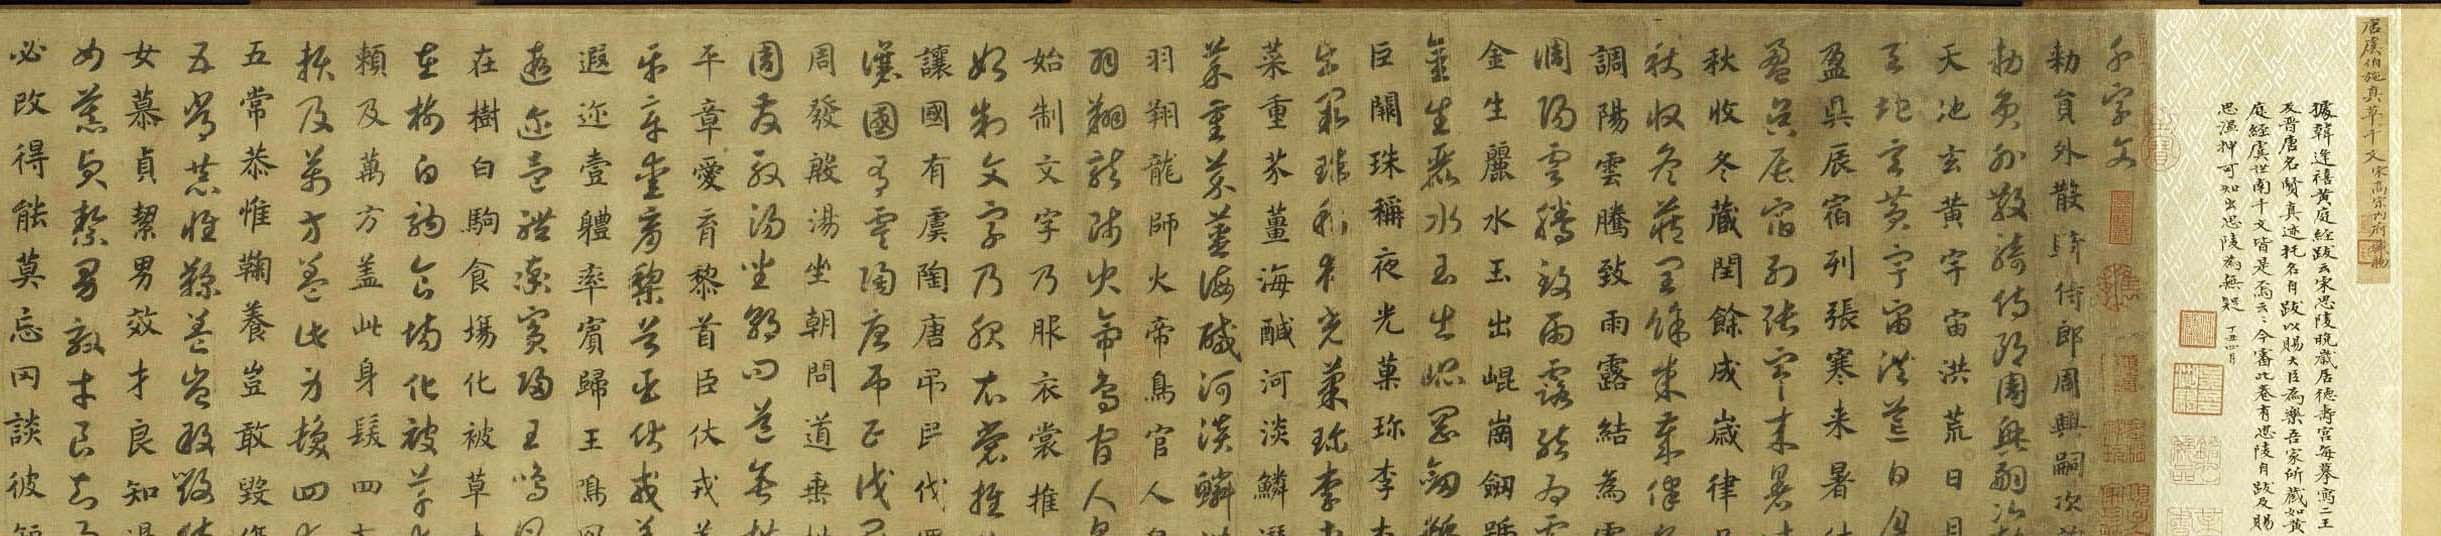 唐虞伯施真草千文宋高宗內府備賜
據韓逢禧黃庭經跋云宋思陵晚歲居德壽宮每摹寫二王
及晉唐名賢真迹托名自跋以賜大臣為樂吾家所藏如黃
庭經虞世南千文皆是焉云云今審此卷有思陵自跋及賜
思温押可知出思陵為無疑 丁丑四月
千字文
勅員外散騎侍郎周興嗣次
勅員外散騎侍郎周興嗣次
天地玄黃宇宙洪荒日月
天地玄黃宇宙洪荒日月
盈昃辰宿列張寒来暑
盈昃辰宿列張寒来暑
秋收冬藏閏餘成歲律
秋收冬藏閏餘成歲律
調陽雲騰致雨露結為
調陽雲騰致雨露結為
金生麗水玉出崐崗劔
金生麗水玉出崐崗劔
巨闕珠稱夜光菓珎李
巨闕珠稱夜光菓珎李
菜重芥薑海醎河淡鱗
菜重芥薑海醎河淡鱗
羽翔龍師火帝鳥官人
羽翔龍師火帝鳥官人
始制文字乃服衣裳推
始制文字乃服衣裳推
讓國有虞陶唐弔民伐
讓國有虞陶唐弔民伐
周發殷湯坐朝問道垂
周發殷湯坐朝問道垂
平章愛育黎首臣伏戎
平章愛育黎首臣伏戎
遐迩壹體率賓歸王鳴
遐迩壹體率賓歸王鳴
在樹白駒食場化被草
在樹白駒食場化被草
賴及萬方盖此身髮四
賴及萬方盖此身髮四
五常恭惟鞠養豈敢毀
五常恭惟鞠養豈敢毀
女慕貞絜男效才良知
女慕貞絜男效才良知
必改得能莫忘罔談彼